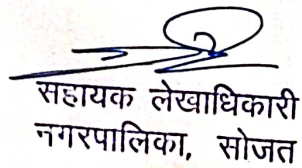 सहायक लेखाधिकारी
नगरपालिका, सोजत